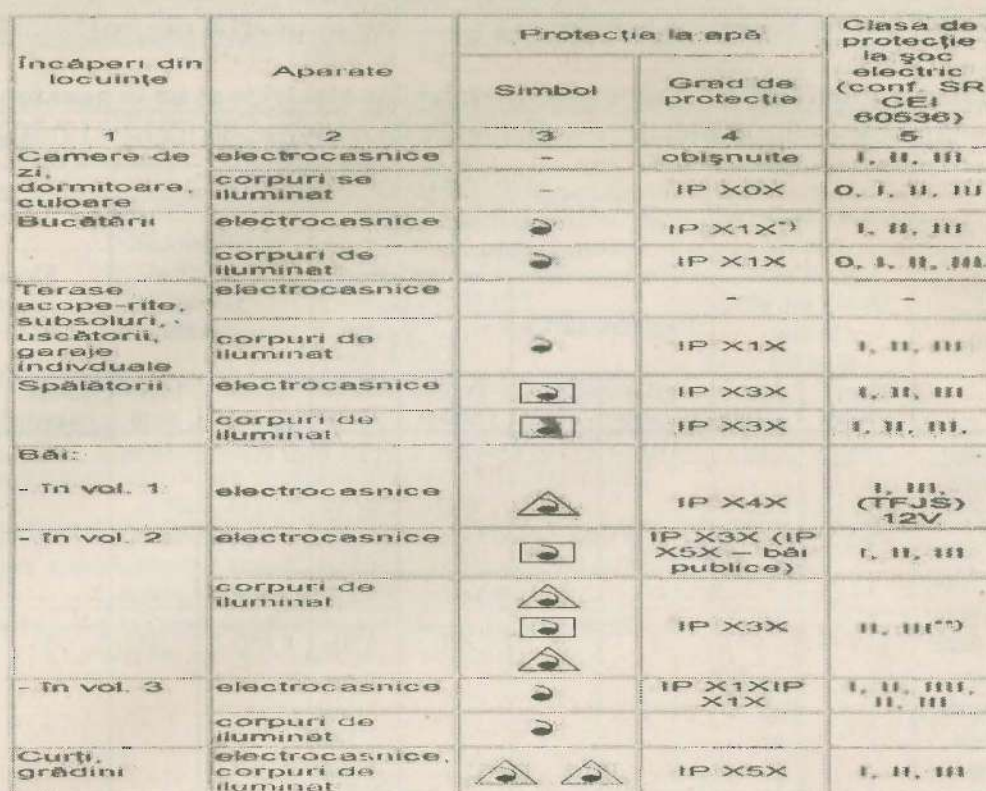 Încăperi din
locuinţe
Aparate
Protecţia la apă
Clasa de
protecţie
la şoc
electric
(conf. SR
CEI
60536)
Simbol
Grad de
protecţie
1 2 3 4 5
Camere de
zi,
dormitoare,
culoare
electrocasnice - obişnuite I, II, III
corpuri se
iluminat
- IP X0X 0, I, II, III
Bucătării electrocasnice IP X1X*) I, II, III
corpuri de
iluminat
IP X1X 0, I, II, III
Terase
acope-rite,
subsoluri,
uscătorii,
garaje
indivduale
electrocasnice - -
corpuri de
iluminat
IP X1X I, II, III
Spălătorii electrocasnice IP X3X I, II, III
corpuri de
iluminat
IP X3X I, II, III.
Băi:
- în vol. 1 electrocasnice IP X4X
I, III,
(TFJS)
12V
- în vol. 2 electrocasnice
IP X3X (IP
X5X – băi
publice)
I, II, III
corpuri de
iluminat
IP X3X II, III**)
- în vol. 3 electrocasnice
IP X1XIP
X1X
I, II, IIII,
II, III
corpuri de
iluminat
Curţi,
grădini
electrocasnice,
corpuri de
iluminat
IP X5X I, II, III